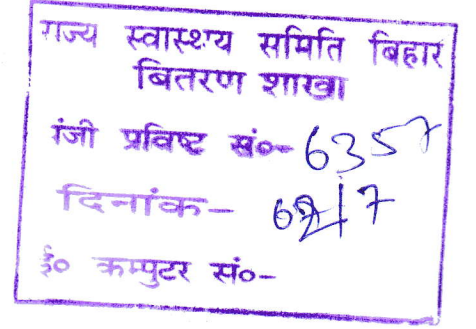 राज्य स्वास्थ्य समिति बिहार
बितरण शाखा
पंजी प्रविष्ट सं०- 6357
दिनांक-
ई० कम्पुटर सं०-